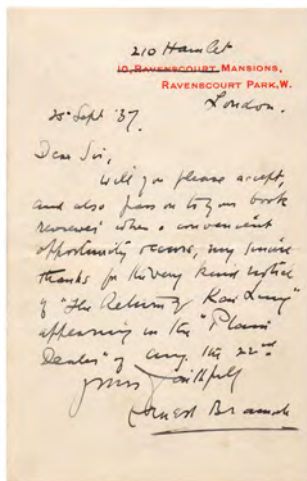 210 Hamlet
10, RAVENSCOURT MANSIONS,
RAVENSCOURT PARK, W.
London.
25 Sept '37.
Dear Sir,
Will you please accept,
and also pass on to your book
reviewer when a convenient
opportunity occurs, my sincere
thanks for the very kind notice
of "The Return of Kai Lung"
appearing in the "Plain
Dealer" of Aug. the 22nd
Yours faithfully
Ernest Bramah